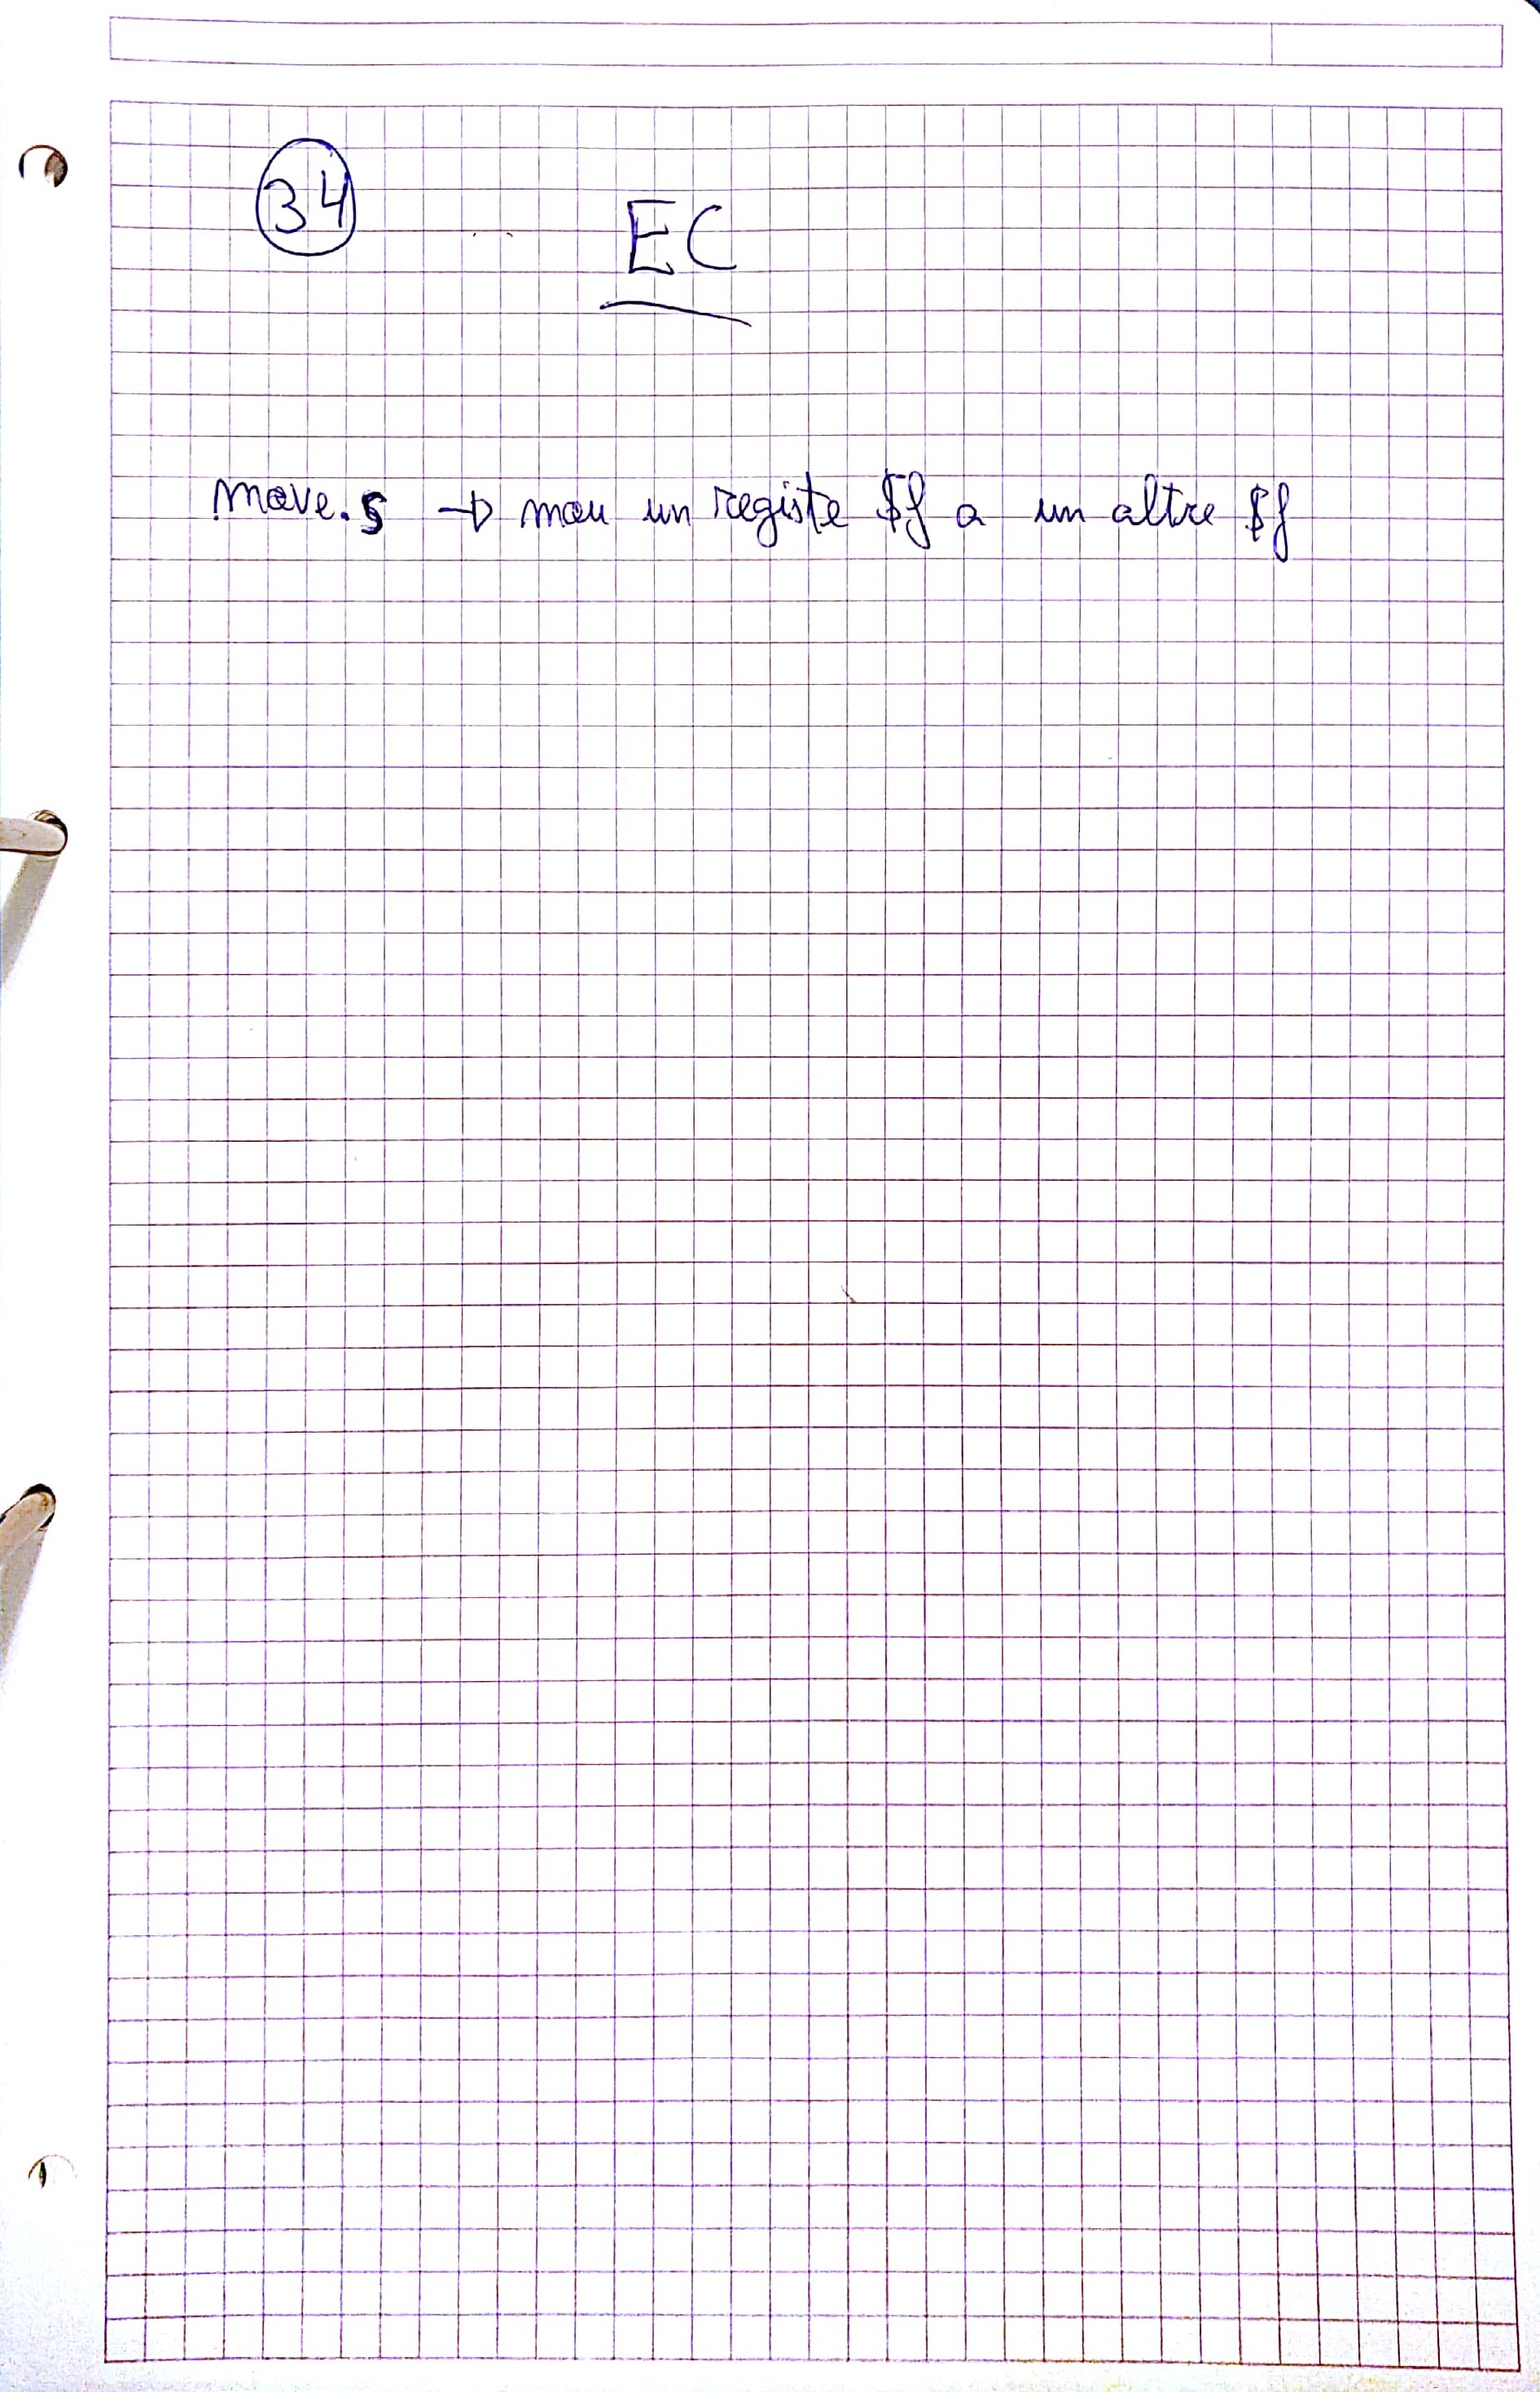 34
EC
move.s → mou un registe $f a un altre $f